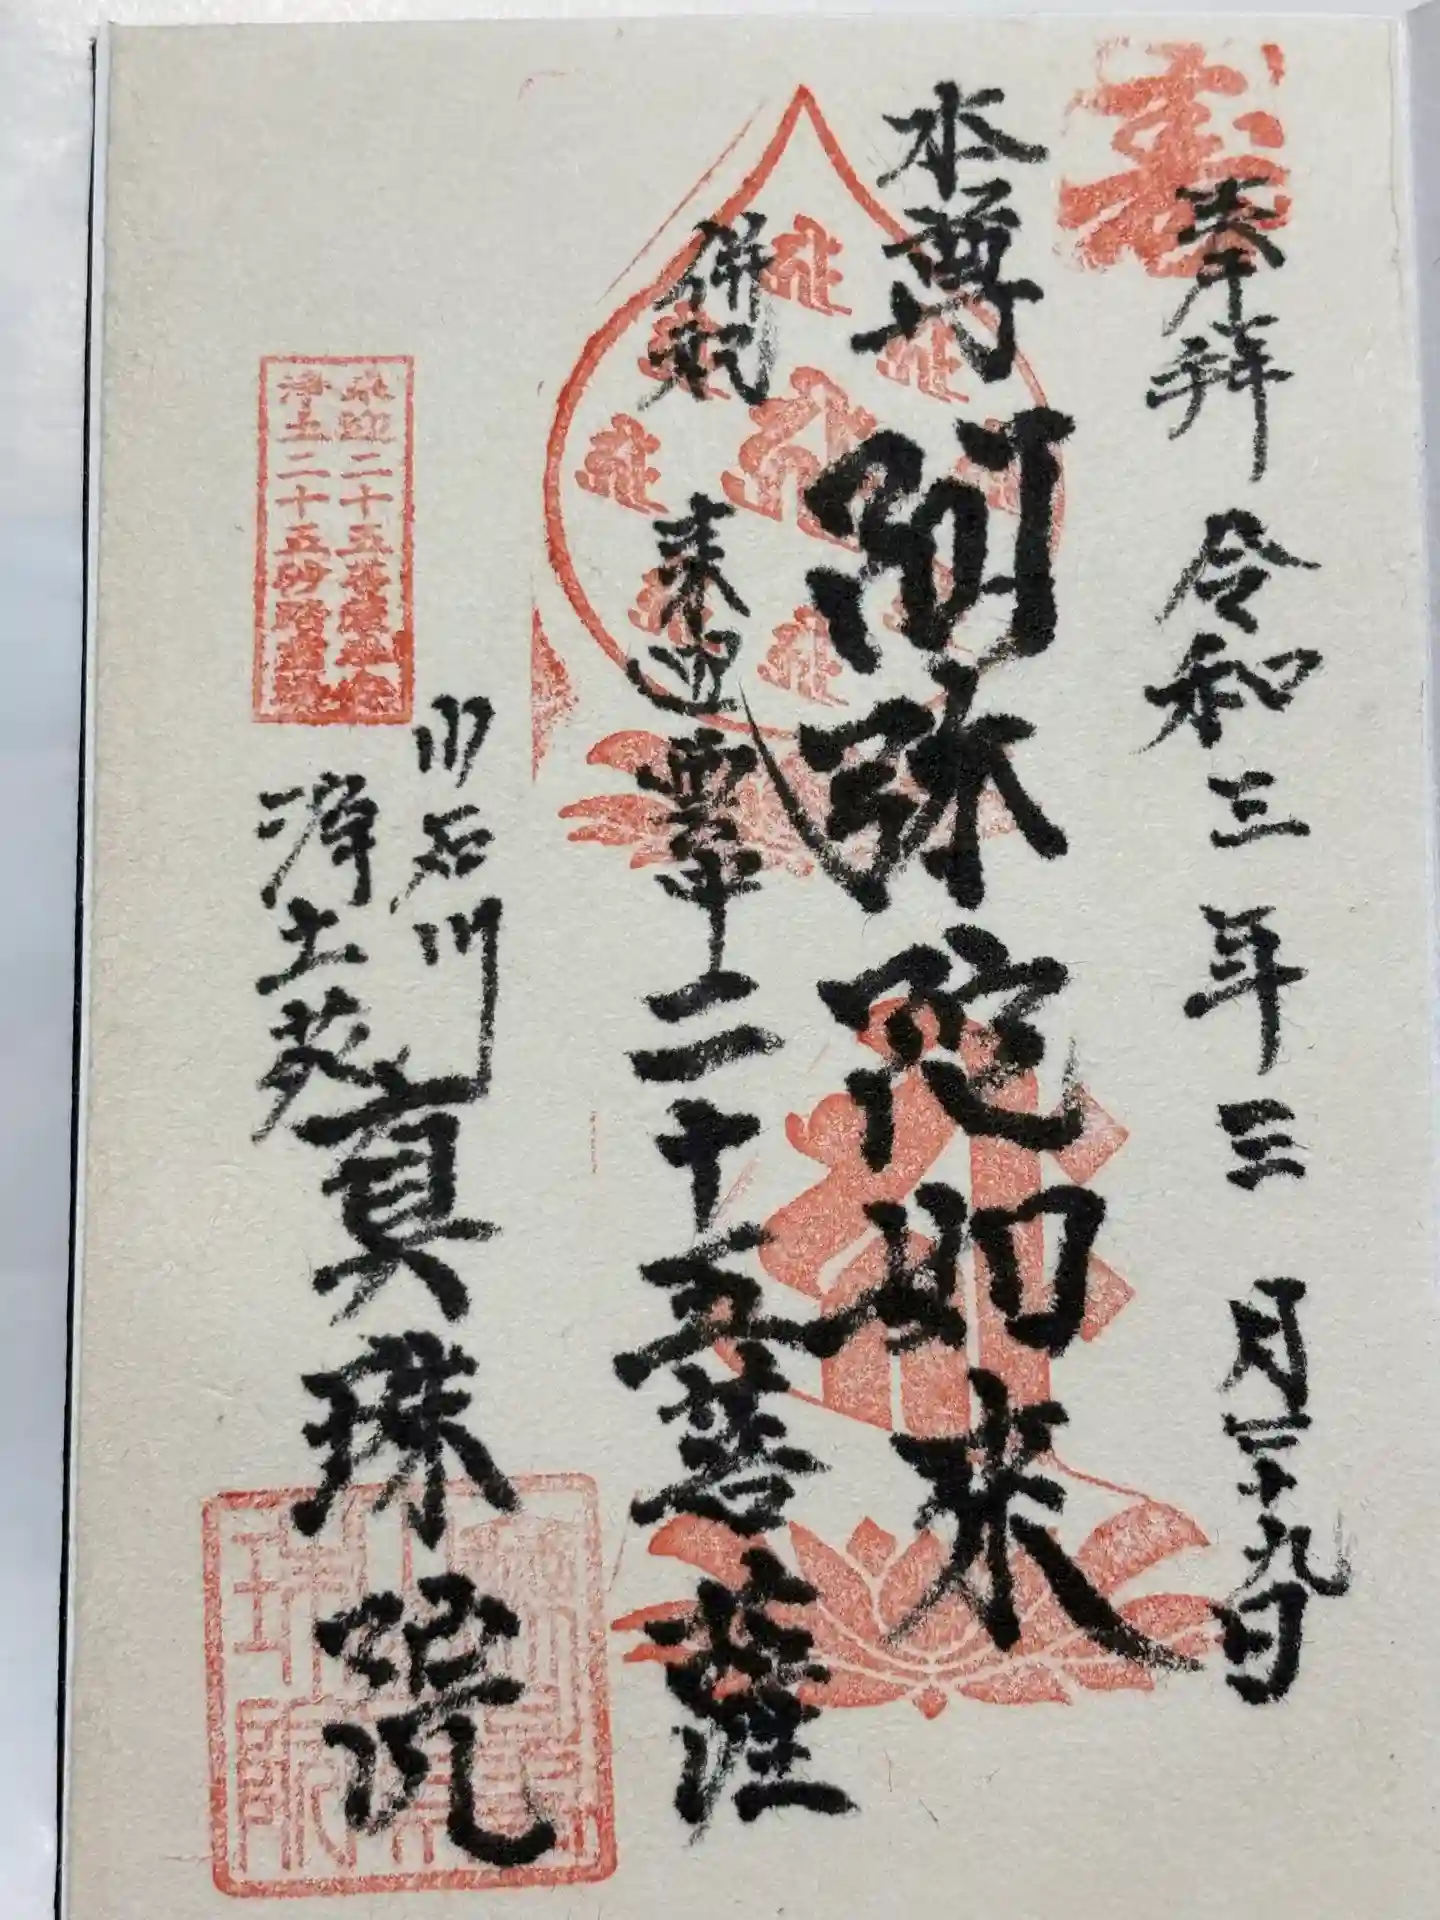 奉拝 令和三年三月二十九日
本尊 阿弥陀如来
併祀 来迎雲中二十五菩薩
小石川
浄土苑
真珠院
来迎二十五菩薩
浄土二十五